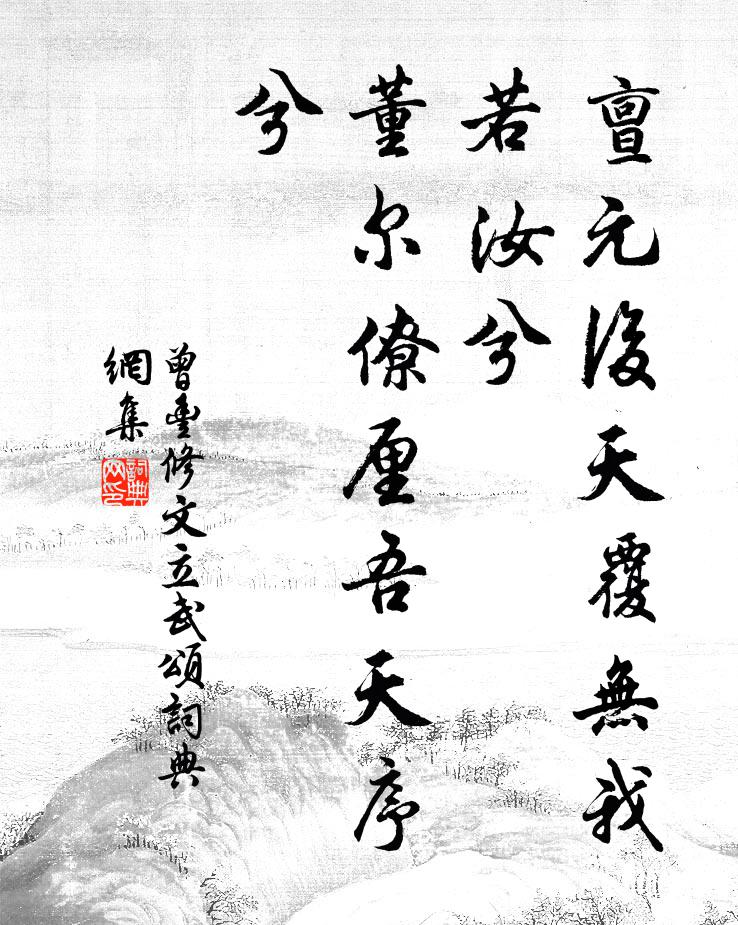 亶元後天覆無我
若汝兮
董尔僚厘吾天序
兮
曾豊修文立武頌詞典
網集
詞典网印